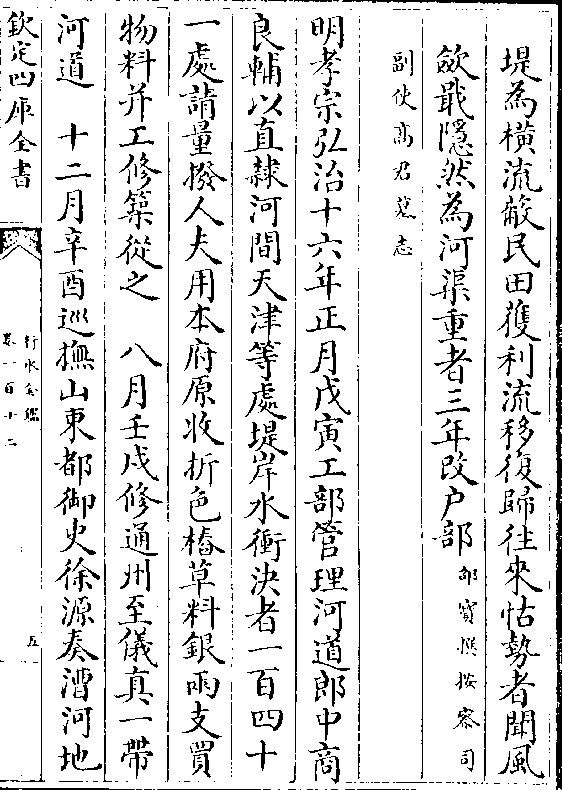 堤為横流敵民田獲利流移復歸往來怙勢者聞風
歛戢隱然為河渠重者三年改户部邵寳撰按察司
副使髙君墓志
明孝宗弘治十六年正月戊寅工部管理河道郎中商
良輔以直隸河間天津等處堤岸水衝決者一百四十
一處請量撥人夫用本府原收折色樁草料銀兩支買
物料并工修築從之　八月壬戌修通州至儀真一帶
河道　十二月辛酉巡撫山東都御史徐源奏漕河地
欽定四庫全書
行水金鑑
卷一百十二
五